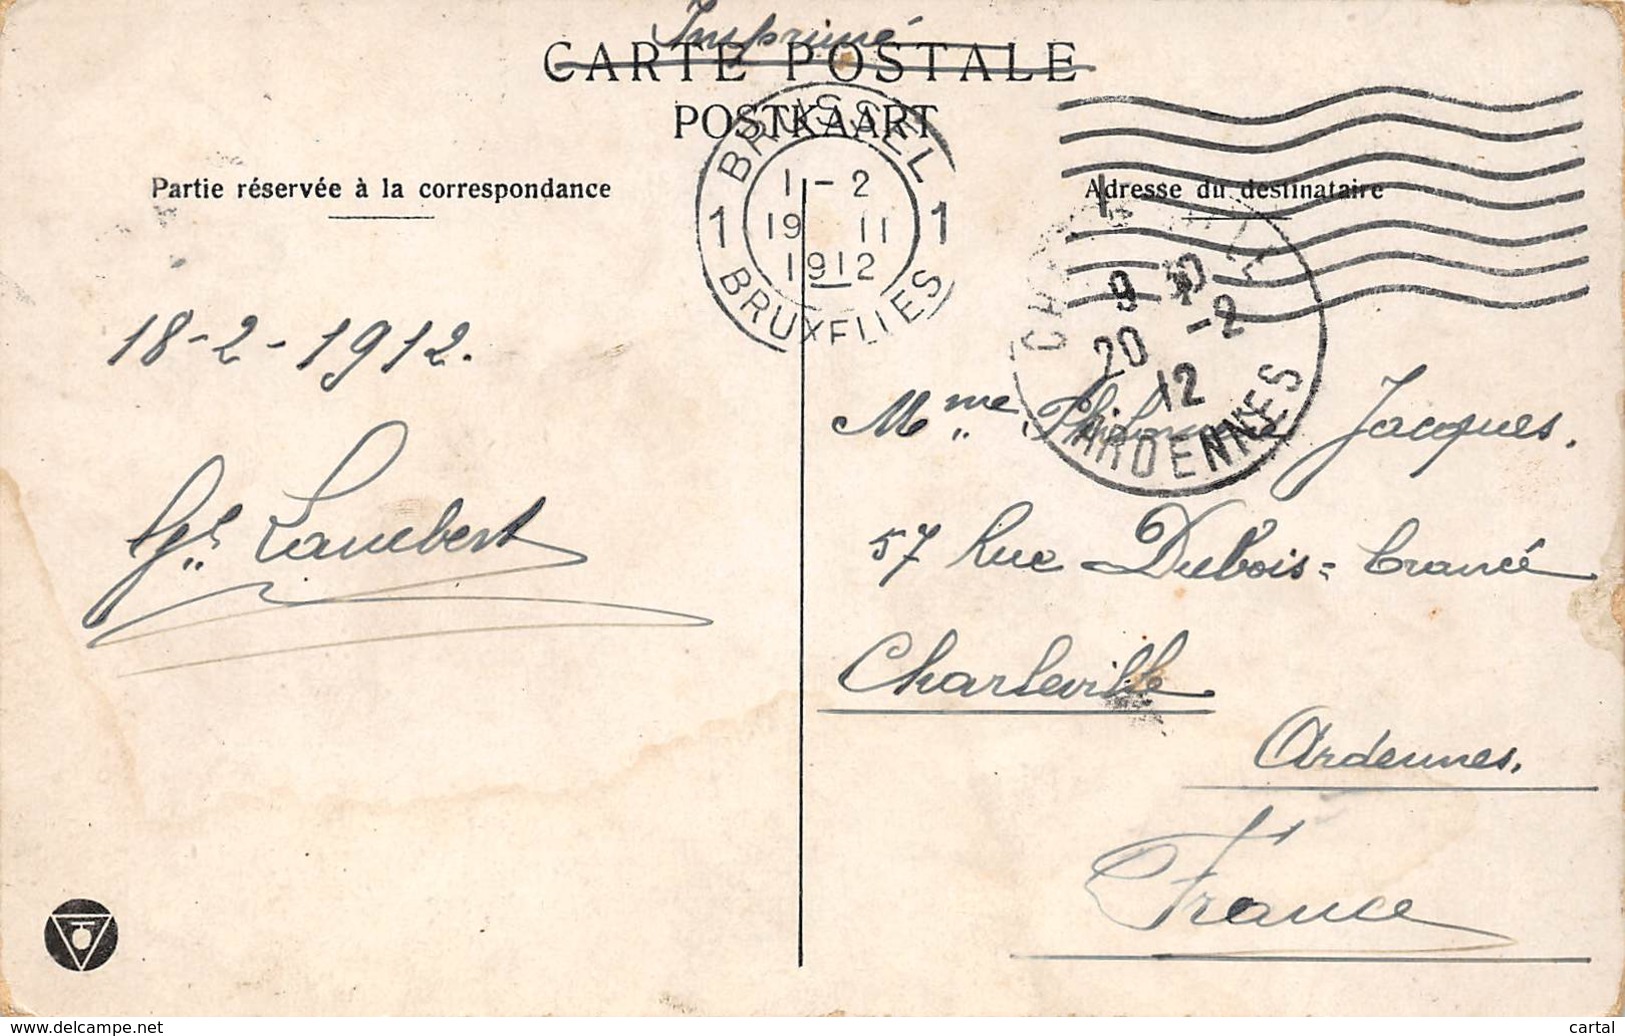 Imprimé
CARTE POSTALE
POSTKAART
Partie réservée à la correspondance
Adresse du destinataire
BRUSSEL
1-2
1 19 II 1
1912
BRUXELLES
9 30
20 -2
12
ARDENNES
18-2-1912.
Lambert
Mme Jacques.
57 Rue Dubois=Crancé
Charleville
Ardennes.
France
www.delcampe.net
cartal